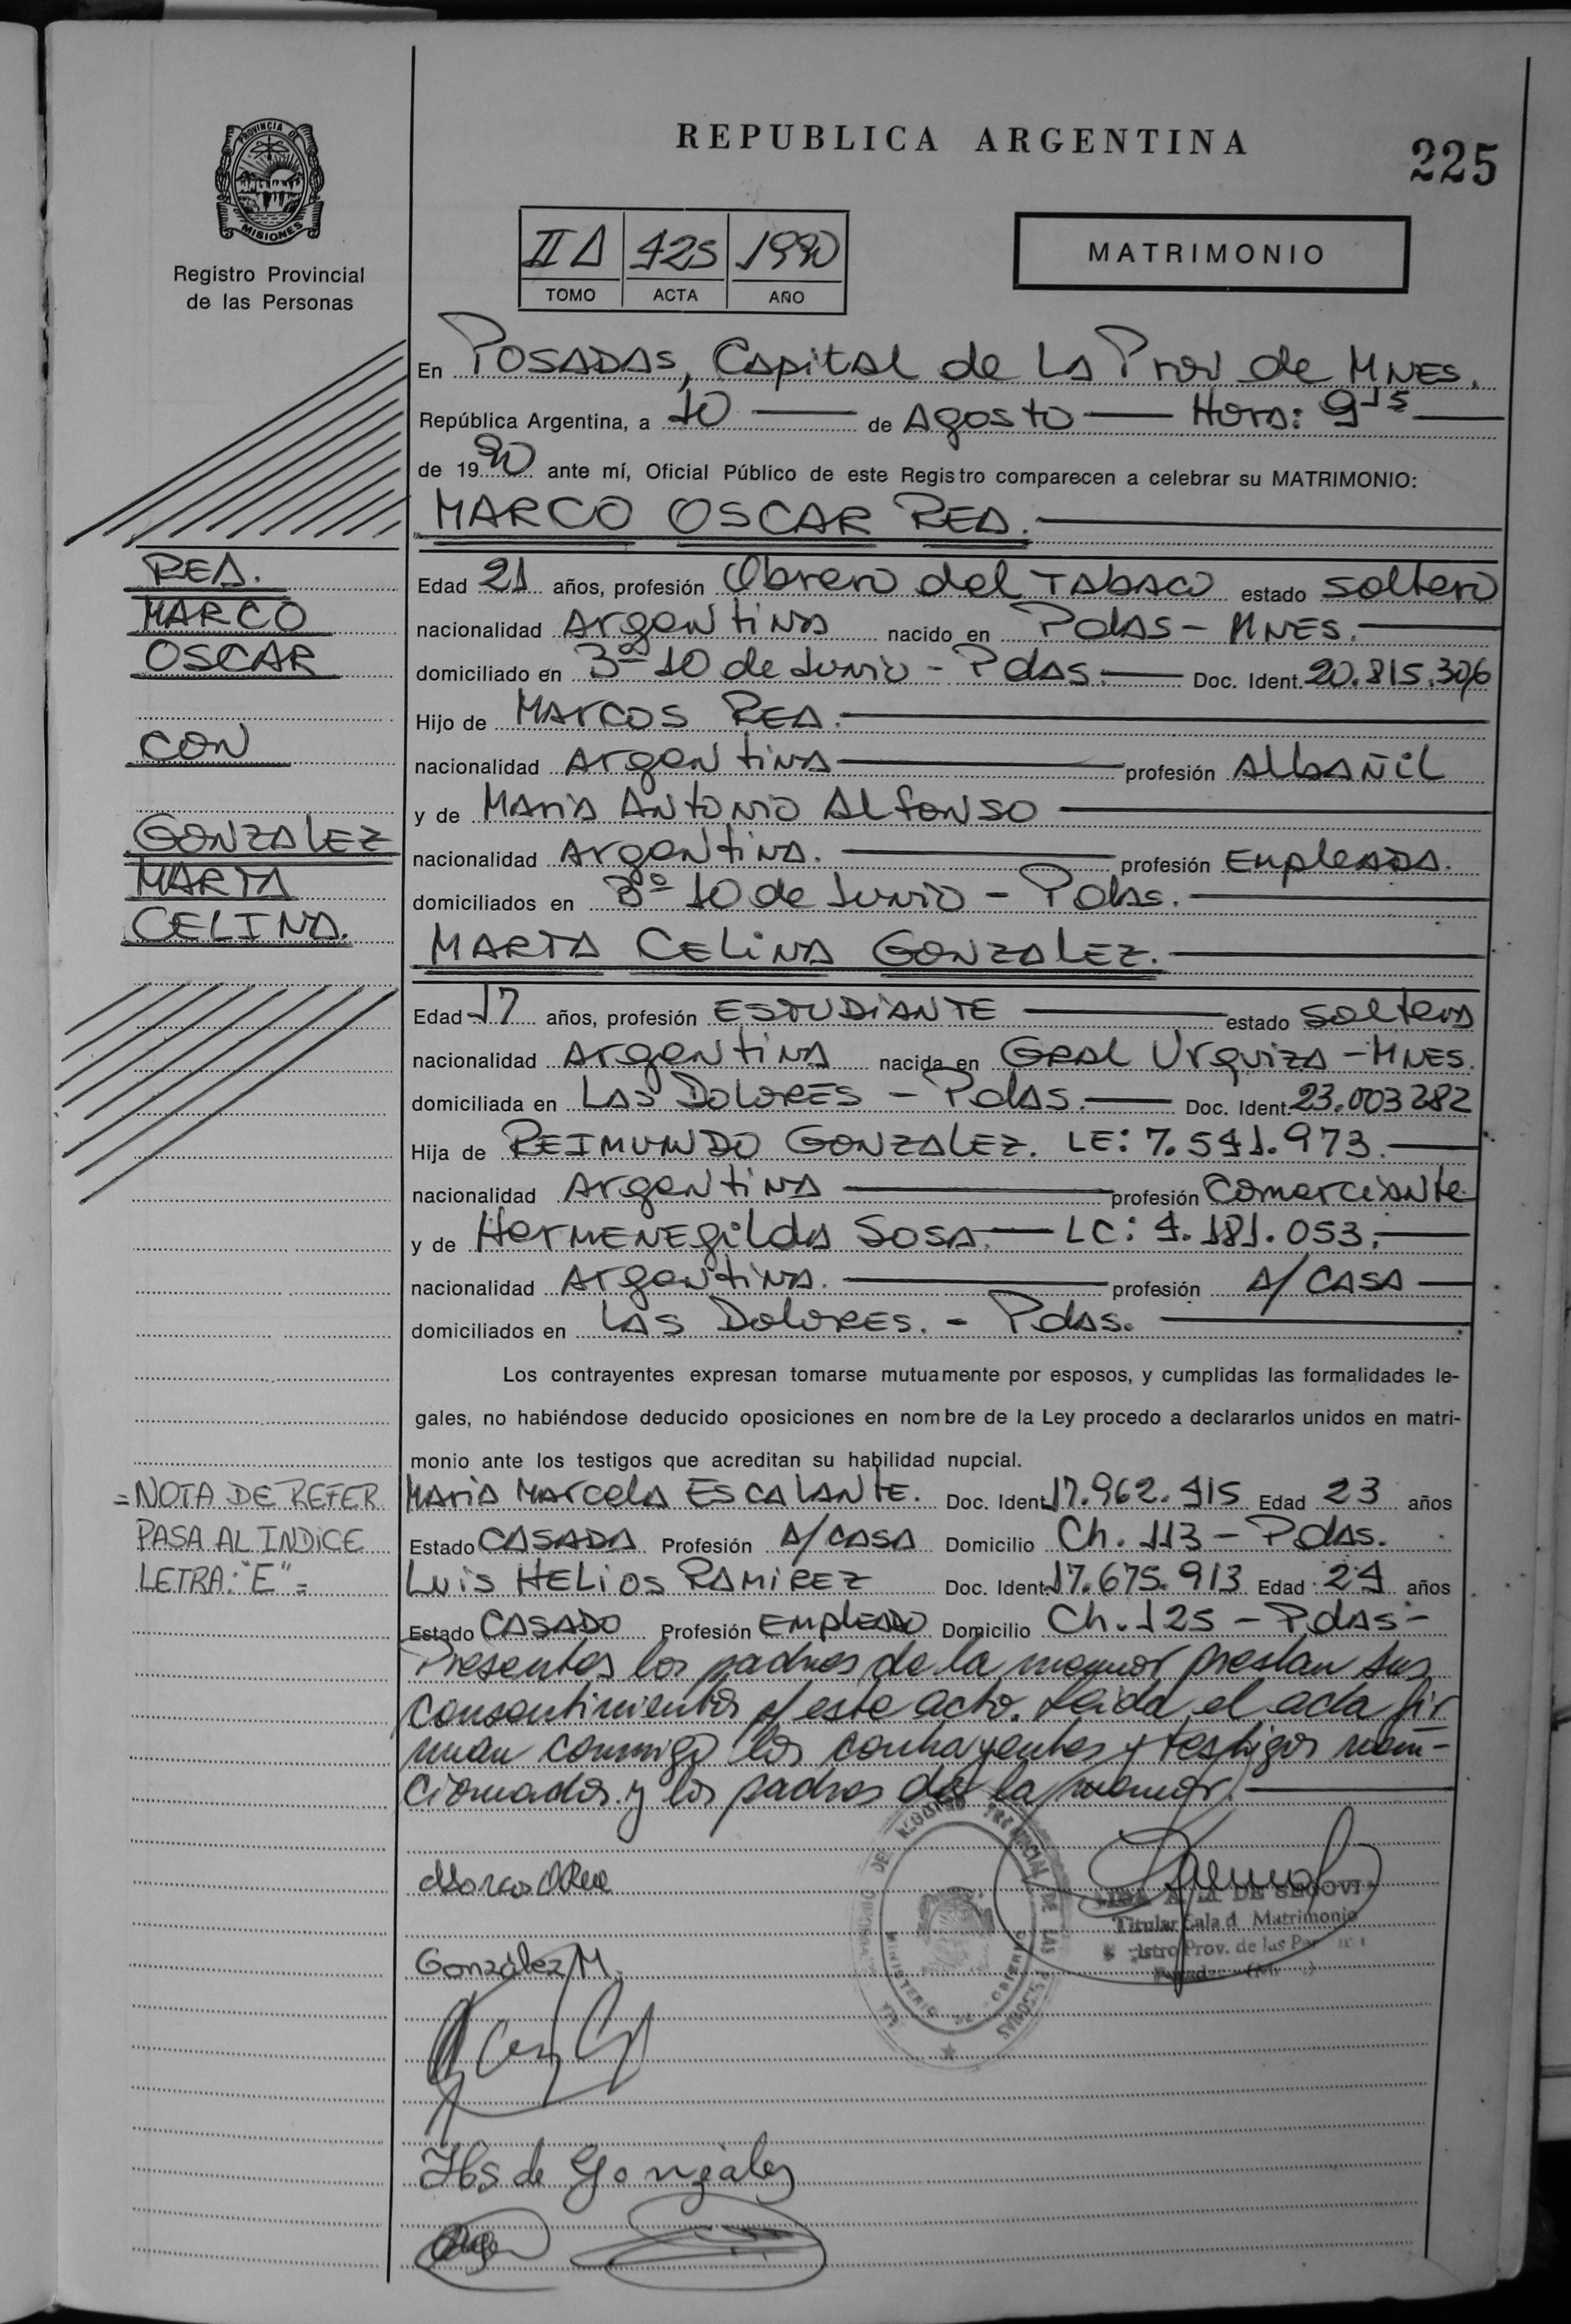 REPUBLICA ARGENTINA
225
PROVINCIA DE
MISIONES
Registro Provincial
de las Personas
II A 425 1990
TOMO ACTA AÑO
MATRIMONIO
En POSADAS, Capital de LA Prov de MNES.
República Argentina, a 10 de Agosto Hora: 9 15
de 1990 ante mí, Oficial Público de este Registro comparecen a celebrar su MATRIMONIO:
MARCO OSCAR REA.
REA.
MARCO
OSCAR
CON
GONZALEZ
MARTA
CELINA.
Edad 21 años, profesión Obrero del TABACO estado soltero
nacionalidad Argentina nacido en Pdas - MNES.
domiciliado en 3º 10 de Junio - Pdas. Doc. Ident. 20.815.306
Hijo de MARCOS REA.
nacionalidad Argentina profesión Albañil
y de Maria ANTONIO ALFONSO
nacionalidad Argentina. profesión Empleada.
domiciliados en 3º 10 de Junio - Pdas.
MARTA CELINA GONZALEZ.
Edad 17 años, profesión ESTUDIANTE estado soltera
nacionalidad Argentina nacida en Gral Urquiza - MNES.
domiciliada en LAS DOLORES - Pdas. Doc. Ident. 23.003282
Hija de REIMUNDO GONZALEZ. LE: 7.541.973.
nacionalidad Argentina profesión Comerciante
y de HERMENEgildA SOSA. LC: 4.181.053.
nacionalidad Argentina. profesión A/CASA
domiciliados en LAS DOLORES. - Pdas.
Los contrayentes expresan tomarse mutuamente por esposos, y cumplidas las formalidades le-
gales, no habiéndose deducido oposiciones en nombre de la Ley procedo a declararlos unidos en matri-
monio ante los testigos que acreditan su habilidad nupcial.
=NOTA DE REFER
PASA AL INDICE
LETRA: "E"=
Maria Marcela ESCALANTE. Doc. Ident. 17.962.415 Edad 23 años
Estado CASADA Profesión A/CASA Domicilio Ch. 113 - Pdas.
LUIS HELIOS RAMIREZ Doc. Ident. 17.675.913 Edad 24 años
Estado CASADO Profesión EMPLEADO Domicilio Ch. 125 - Pdas -
Presentes los padres de la menor prestan sus
consentimientos p/ este acto. Leida el acta fir
man conmigo los contrayentes y testigos men-
cionados y los padres de la menor.
González M.
Hs de Gonzalez
DE SEGOVI
Titular Sala d Matrimonio
istro Prov. de las Per
MINISTERIO DE GOBIERNO